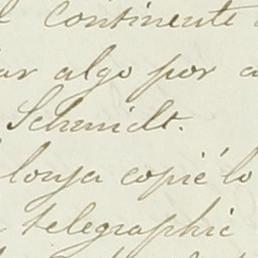 l continente
ar algo por a
Schmidt.
lonja copié lo
telegraphie